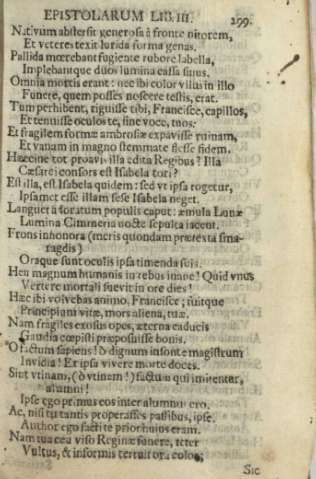 EPISTOLARUM LIB. III. 299.
Nativum abstersit generosa à fronte nitorem,
Et veteres texit lurida forma genas.
Pallida mœrebant fugiente rubore labella,
Implebantque duos lumina cassa sinus.
Omnia mortis erant: nec ibi color ullus in illo
Funere, quem posses noscere testis, erat.
Tum perhibent, riguisse tibi, Francisce, capillos,
Et tenuisse oculos te, sine voce, tuos.
Et fragilem formæ ambrosiæ expavisse ruinam,
Et vanam in magno stemmate sisse fidem.
Hæccine tot proavis illa edita Regibus? Illa
Cæsarei consors est Isabela tori?
Est illa, est Isabela quidem: sed ut ipsa rogetur,
Ipsamet esse illam sese Isabela neget.
Languet adoratum populis caput: æmula Lunæ
Lumina Cimmeria nocte sepulta jacent.
Frons inhonora (meris quondam prætexta sma-
ragdis)
Oraque sunt oculis ipsa timenda suis.
Heu magnum humanis in rebus inane! Quid unus
Vertere mortali sueuit in ore dies!
Hæc ibi volvebas animo, Francisce; fuitque
Principium vitæ, mors aliena, tuæ.
Nam fragiles exosus opes, æterna caducis
Gaudia cœpisti præposuisse bonis.
O factum sapiens! ô dignum insonte magistrum
Invidia! Et ipsa vivere morte doces.
Sint utinam, (ô utinem!) factum qui imitentur,
alumni!
Ipse ego primus eos inter alumnus ero.
Ac, nisi tu tantis properasses passibus, ipse
Author ego facti te prior huius eram.
Nam tua ceu viso Reginæ funere, teter
Vultus, & informis terruit ora color;
Sic